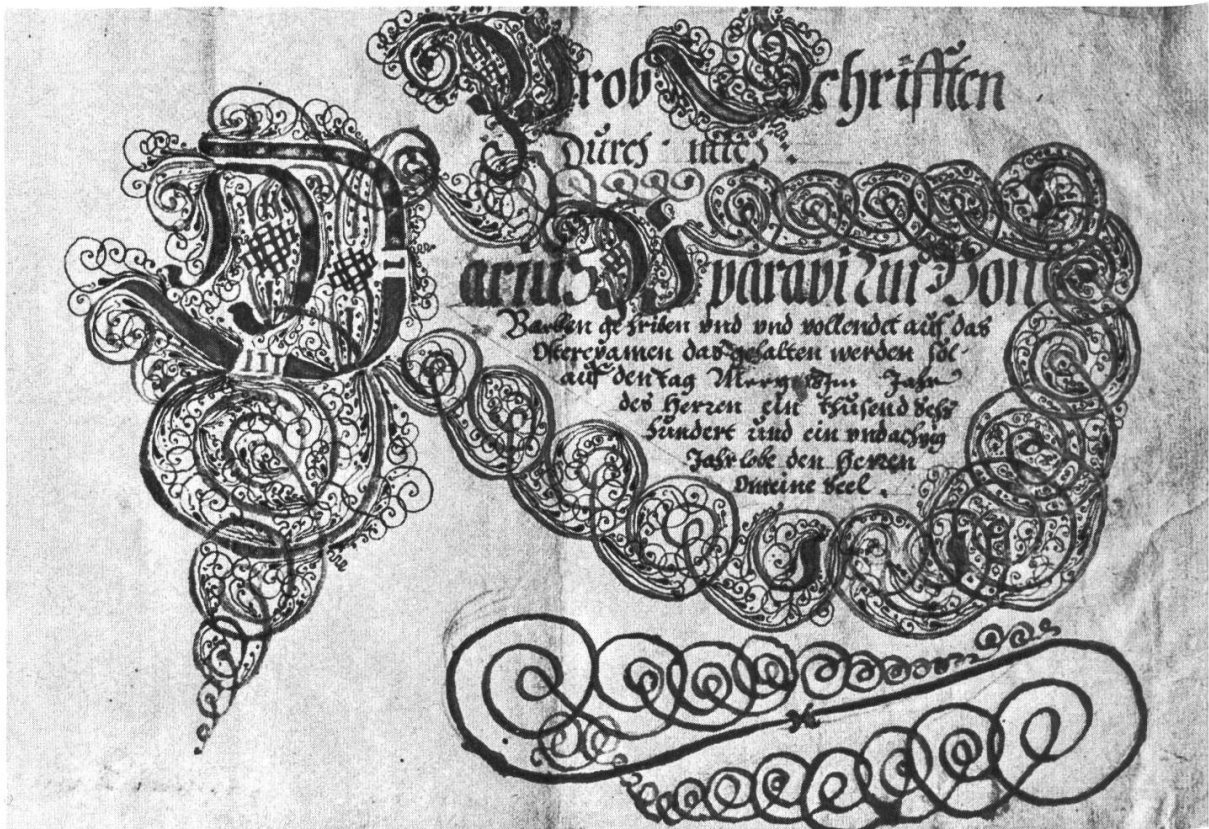 Prob Schrifften
Durch mich
Barben geschriben vnd vnd vollendet auf das
Osterexamen das gehalten werden sol
auf den tag Jahr
des Herren ein thusend sechs
hundert und ein vndachzig
Jahr lobe den Herren
O meine seel.